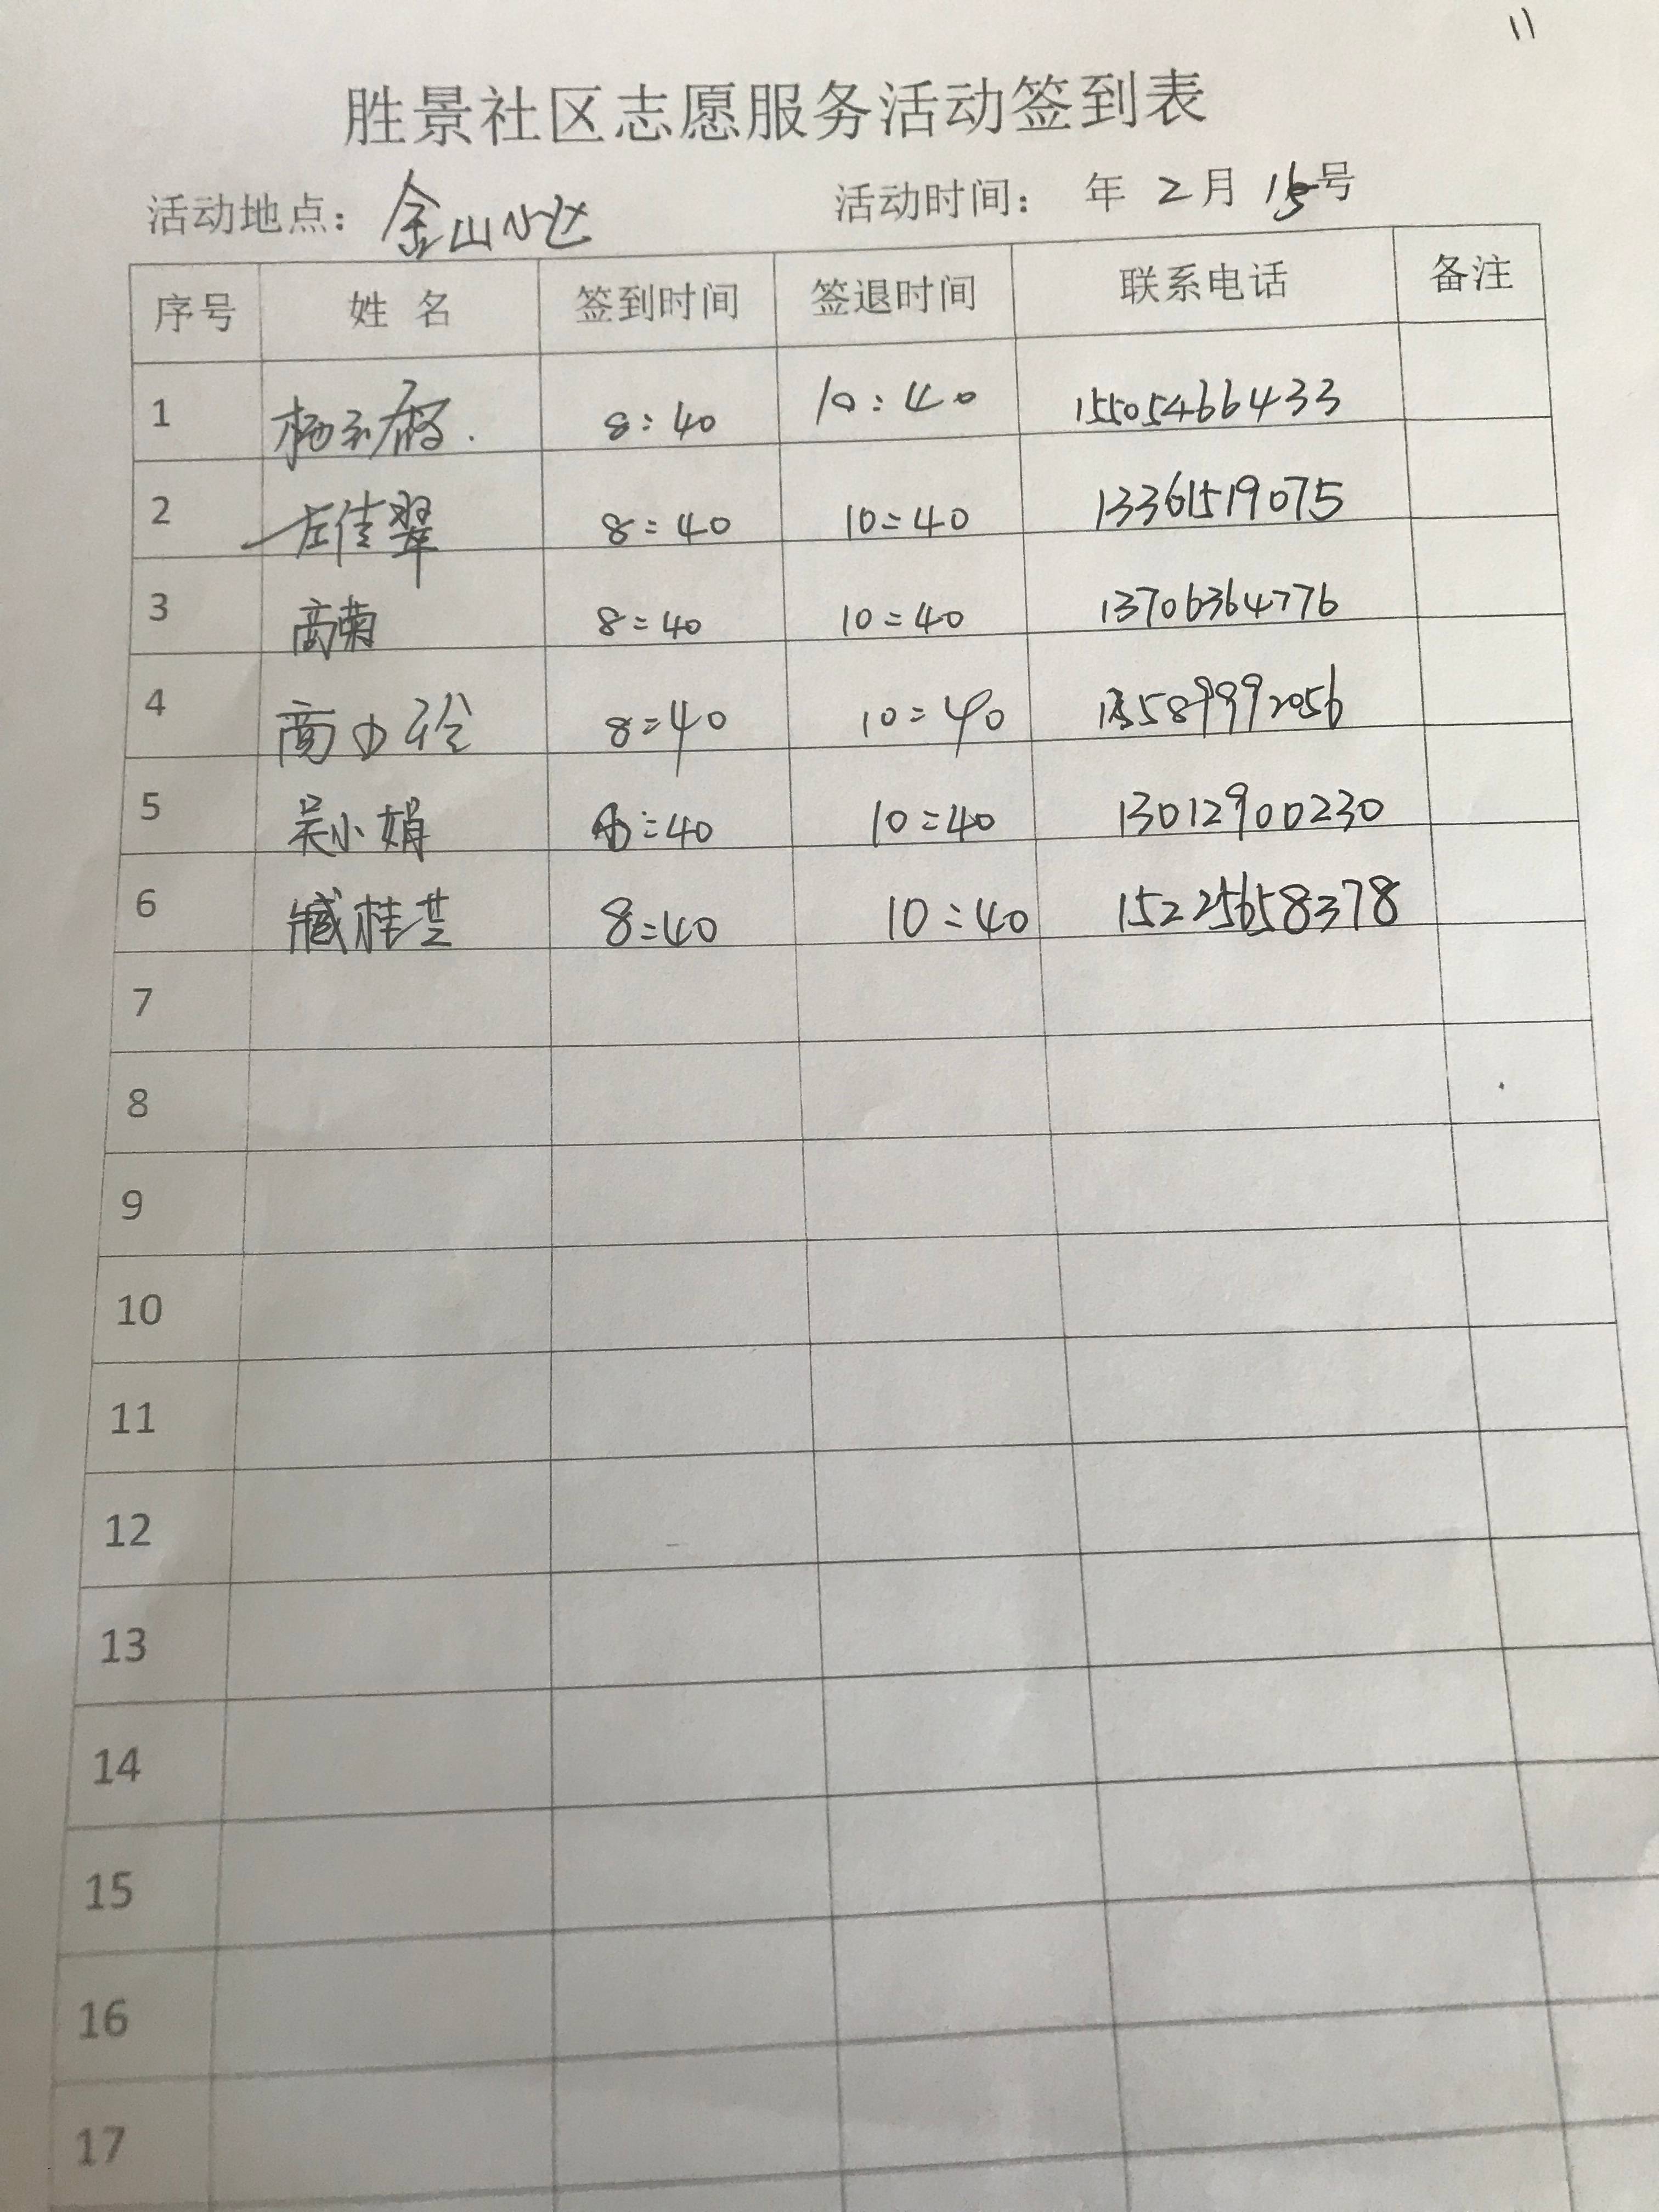 11
胜景社区志愿服务活动签到表
活动地点：金山小区 活动时间： 年 2月 15号
序号 姓 名 签到时间 签退时间 联系电话 备注
1 8:40 10:40 15505466433
2 左佳翠 8:40 10:40 13361519075
3 高菊 8:40 10:40 13706364776
4 8:40 10:40 15589992056
5 吴小娟 8:40 10:40 13012900230
6 臧桂芝 8:40 10:40 15225658378
7
8
9
10
11
12
13
14
15
16
17